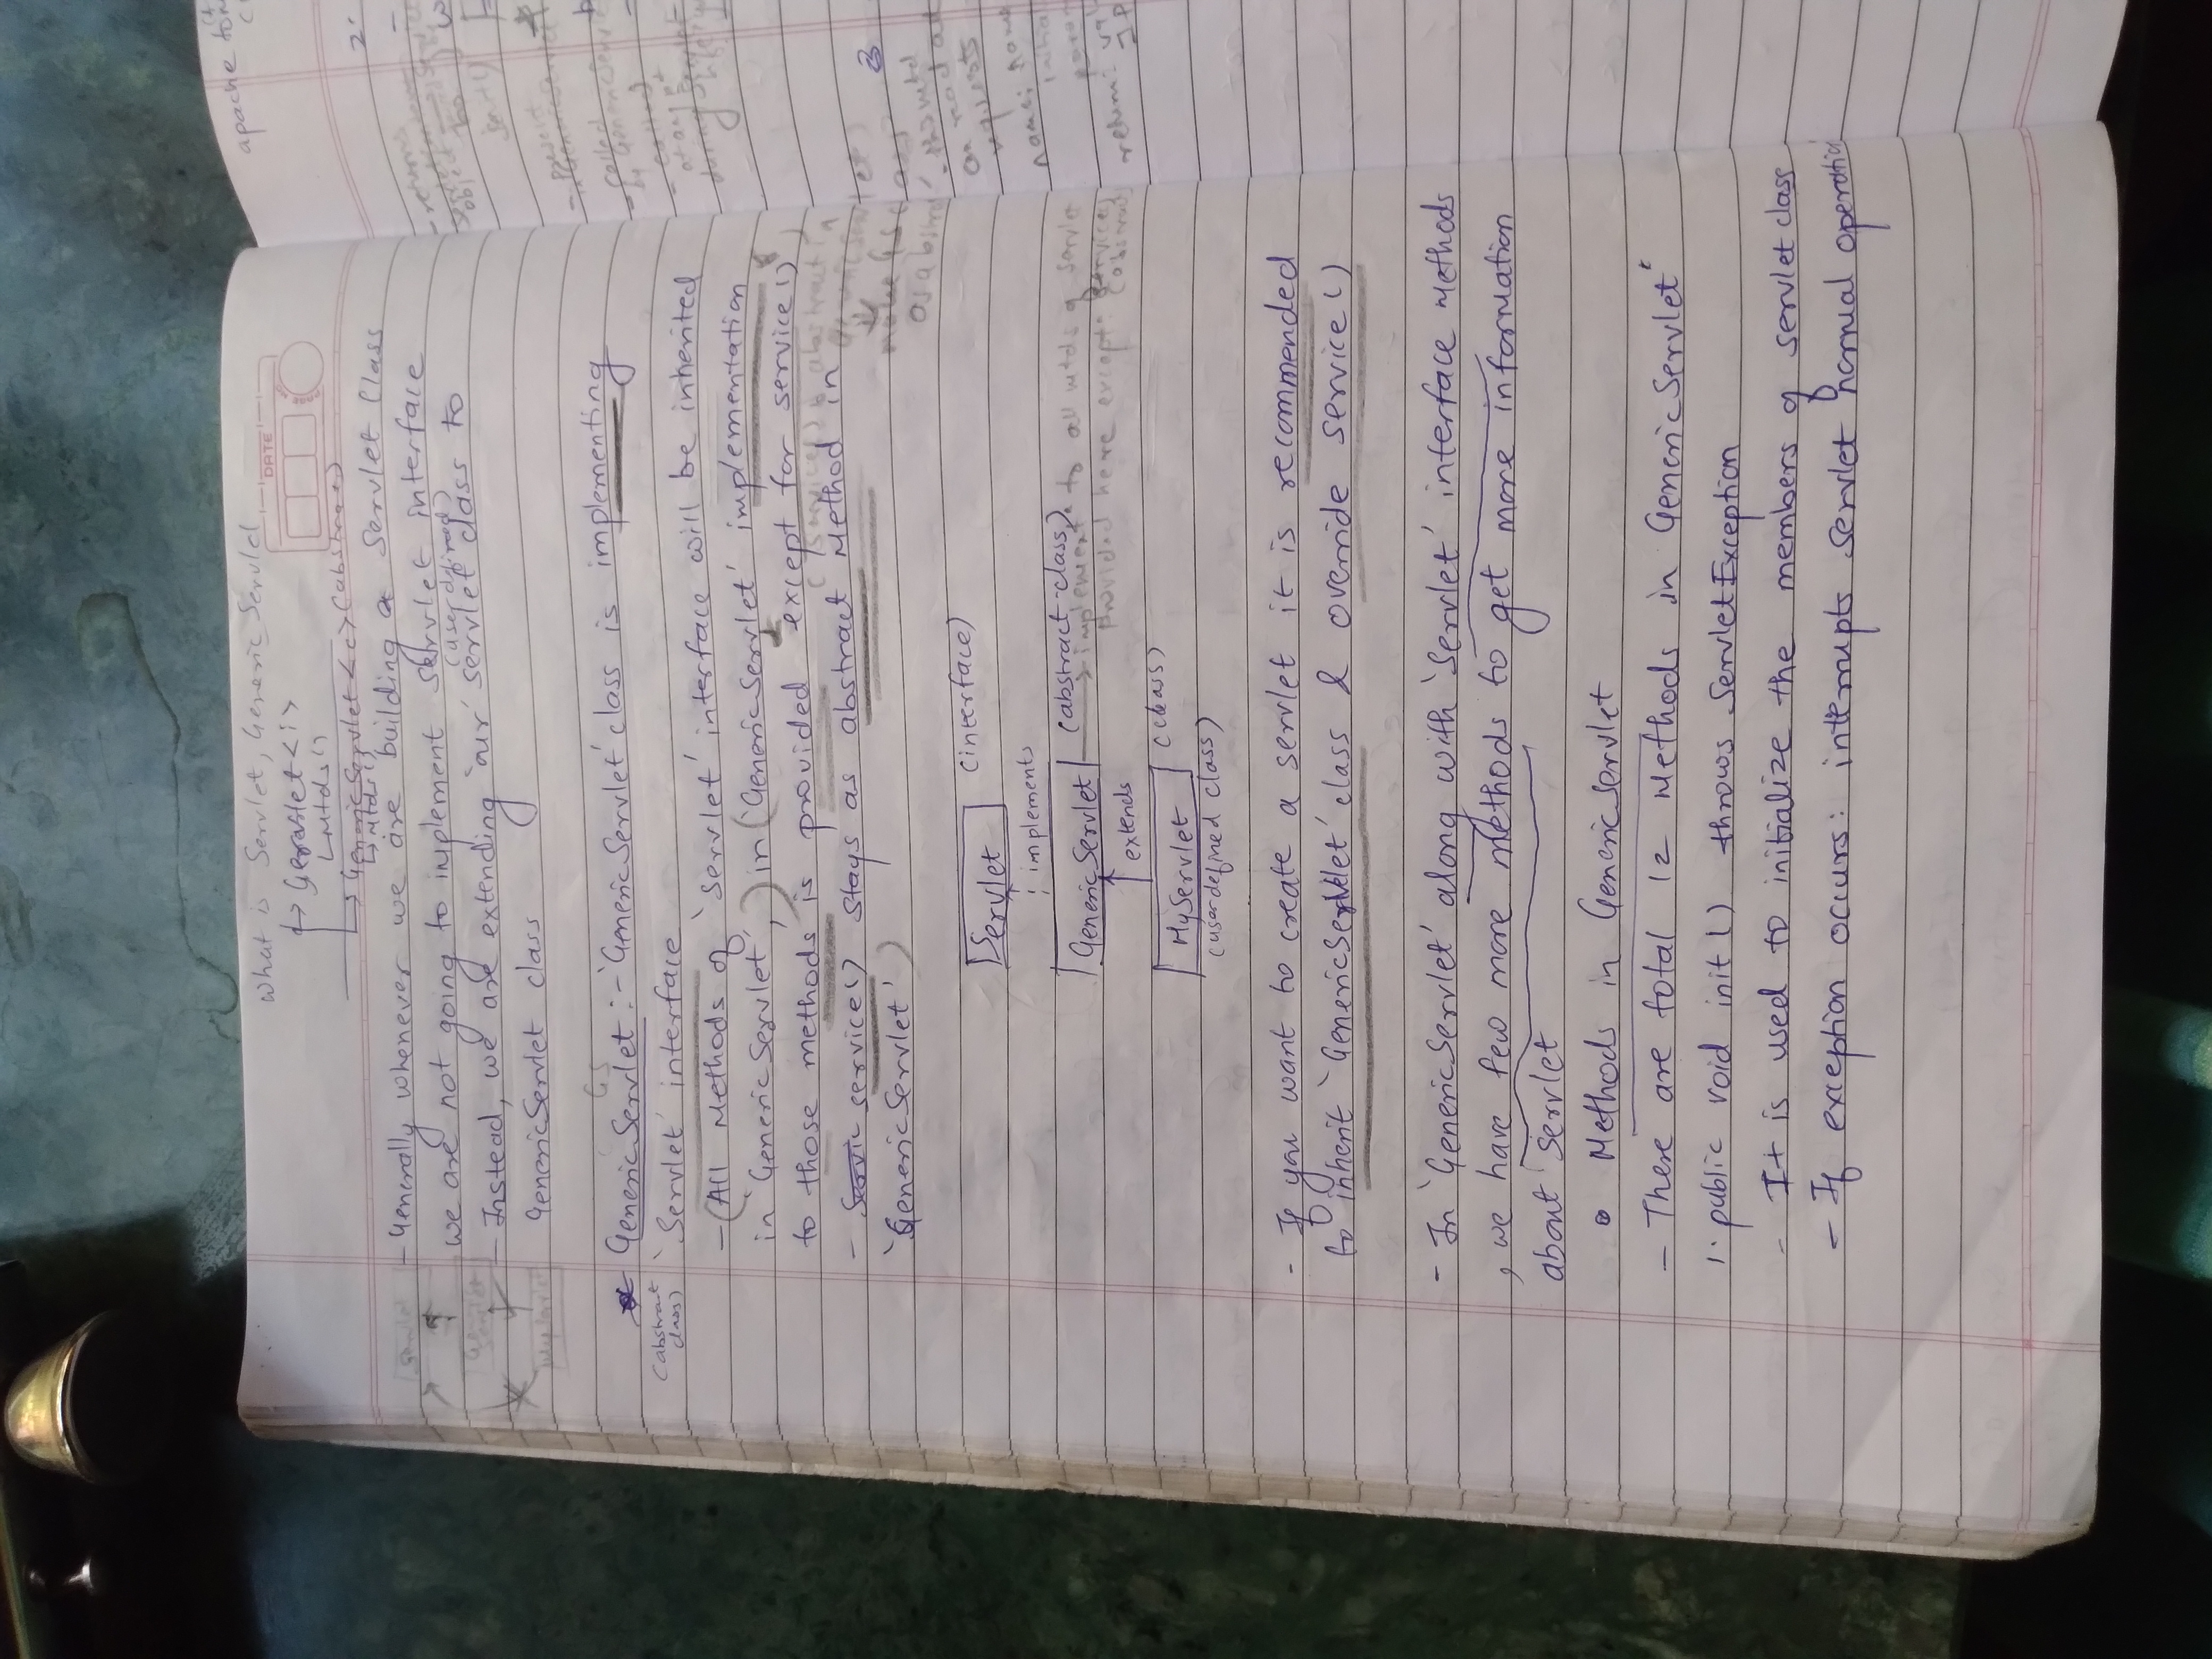 What is Servlet, Generic Servlet
DATE
↳ Servlet <i>
↳ Mtds()
↳ GenericServlet <c> (abstract)
↳ Mtds()
- Generally whenever we are building a Servlet Class
we are not going to implement Servlet interface
(user defined)
- Instead, we are extending 'our' servlet class to
GenericServlet class
GS
* GenericServlet :- 'GenericServlet' class is implementing
(abstract class)
'Servlet' interface
- (All Methods of 'Servlet' interface will be inherited
in 'GenericServlet',) in ('GenericServlet' implementation
to those methods is provided except for service()
- service() stays as abstract Method in
'GenericServlet')
make GS class
as abstract
Servlet (interface)
implements
GenericServlet (abstract class)
→ implement to all mtds of servle
Provided here except service()
(abstract)
extends
MyServlet (class)
(userdefined class)
- If you want to create a servlet it is recommended
to inherit 'GenericServlet' class & override service()
- In 'GenericServlet' along with 'Servlet' interface Methods
, we have few more methods to get more information
about servlet
Methods in GenericServlet
- There are total 12 Methods in GenericServlet
1. public void init() throws ServletException
- It is used to initialize the members of servlet class
- If exception occurs: interrupts servlet normal operation
apache
2.
- returns
object
- present
- called
- called
at any pt
3
requests
name:
return: